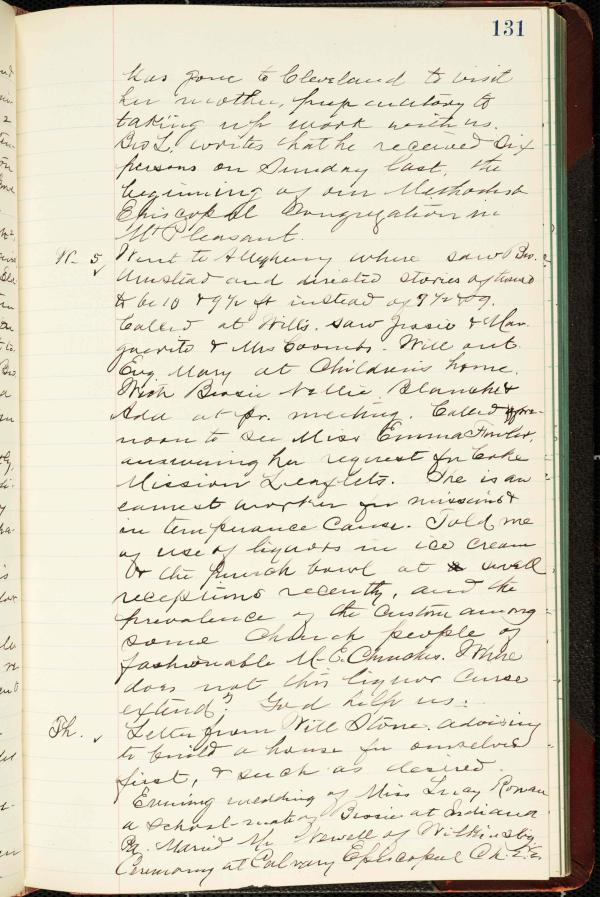 131
has gone to Cleveland to visit
her mother, preparatory to
taking up work with us.
Bro L. writes that he received six
persons on Sunday last, the
beginning of our Methodist
Episcopal Congregation in
Mt Pleasant.
W. 5 Went to Allegheny where saw Bro.
Umstead and directed stories of house
to be 10 & 9½ ft instead of 9½ & 9.
Called at Will's. saw Josie & Mar-
guerite & Mrs Coombs. Will out.
Eve Mary at Children's home.
With Bessie Nellie Blanche &
Ada at pr. meeting. Called
noon to see Miss Emma Fowler,
answering her request for Coke
Mission Leaflets. She is an
earnest worker for missions &
in temperance cause. Told me
of use of liquors in ice cream
& the punch bowl at swell
receptions recently, and the
prevalence of the custom among
some Church people of
fashionable M.E. Churches. Where
does not this liquor curse
extend? God help us.
Th. Letter from Will Stone. advising
to build a house for ourselves
first, & such as desired.
Evening wedding of Miss Lucy Rowan
a school-mate of Bessie at Indiana
Pa. Married Mr. Newell of
Ceremony at Calvary Episcopal Ch. E.E.